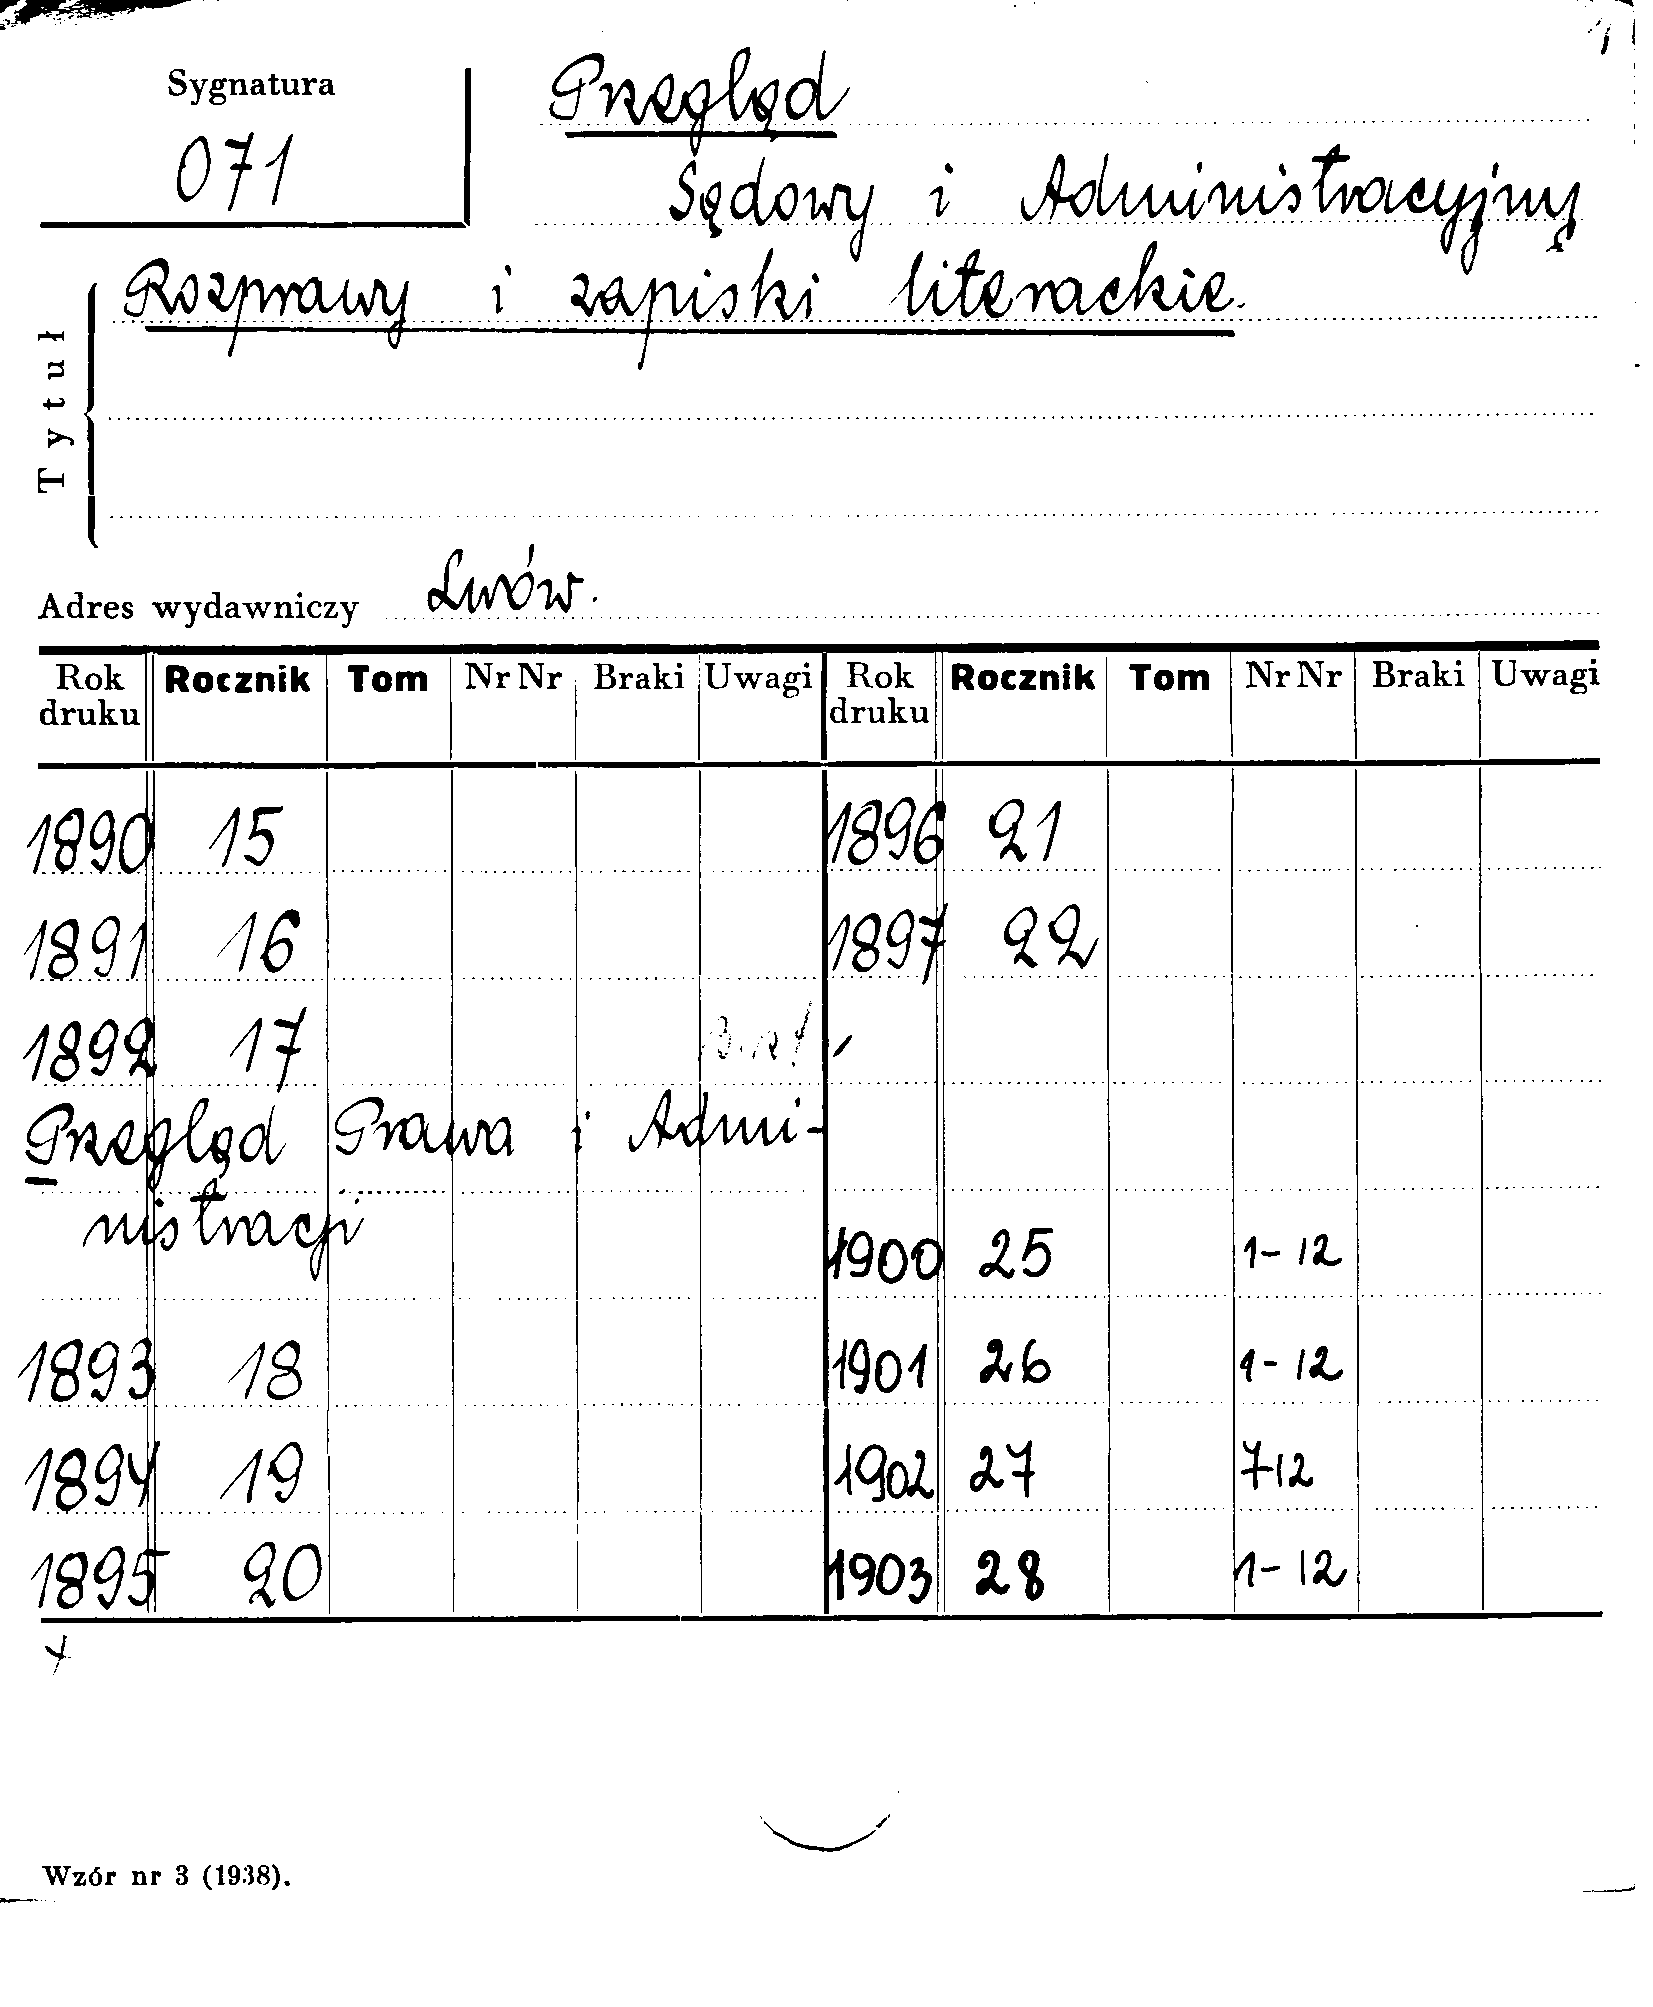 Sygnatura
071
Przegląd
Sądowy i Administracyjny
Rozprawy i zapiski literackie.
Tytuł
Adres wydawniczy Lwów.
Rok druku Rocznik Tom Nr Nr Braki Uwagi Rok druku Rocznik Tom Nr Nr Braki Uwagi
1890 15 1896 21
1891 16 1897 22
1892 17
Przegląd Prawa i Admi-
nistracji
1900 25 1-12
1893 18 1901 26 1-12
1894 19 1902 27 7-12
1895 20 1903 28 1-12
Wzór nr 3 (1938).